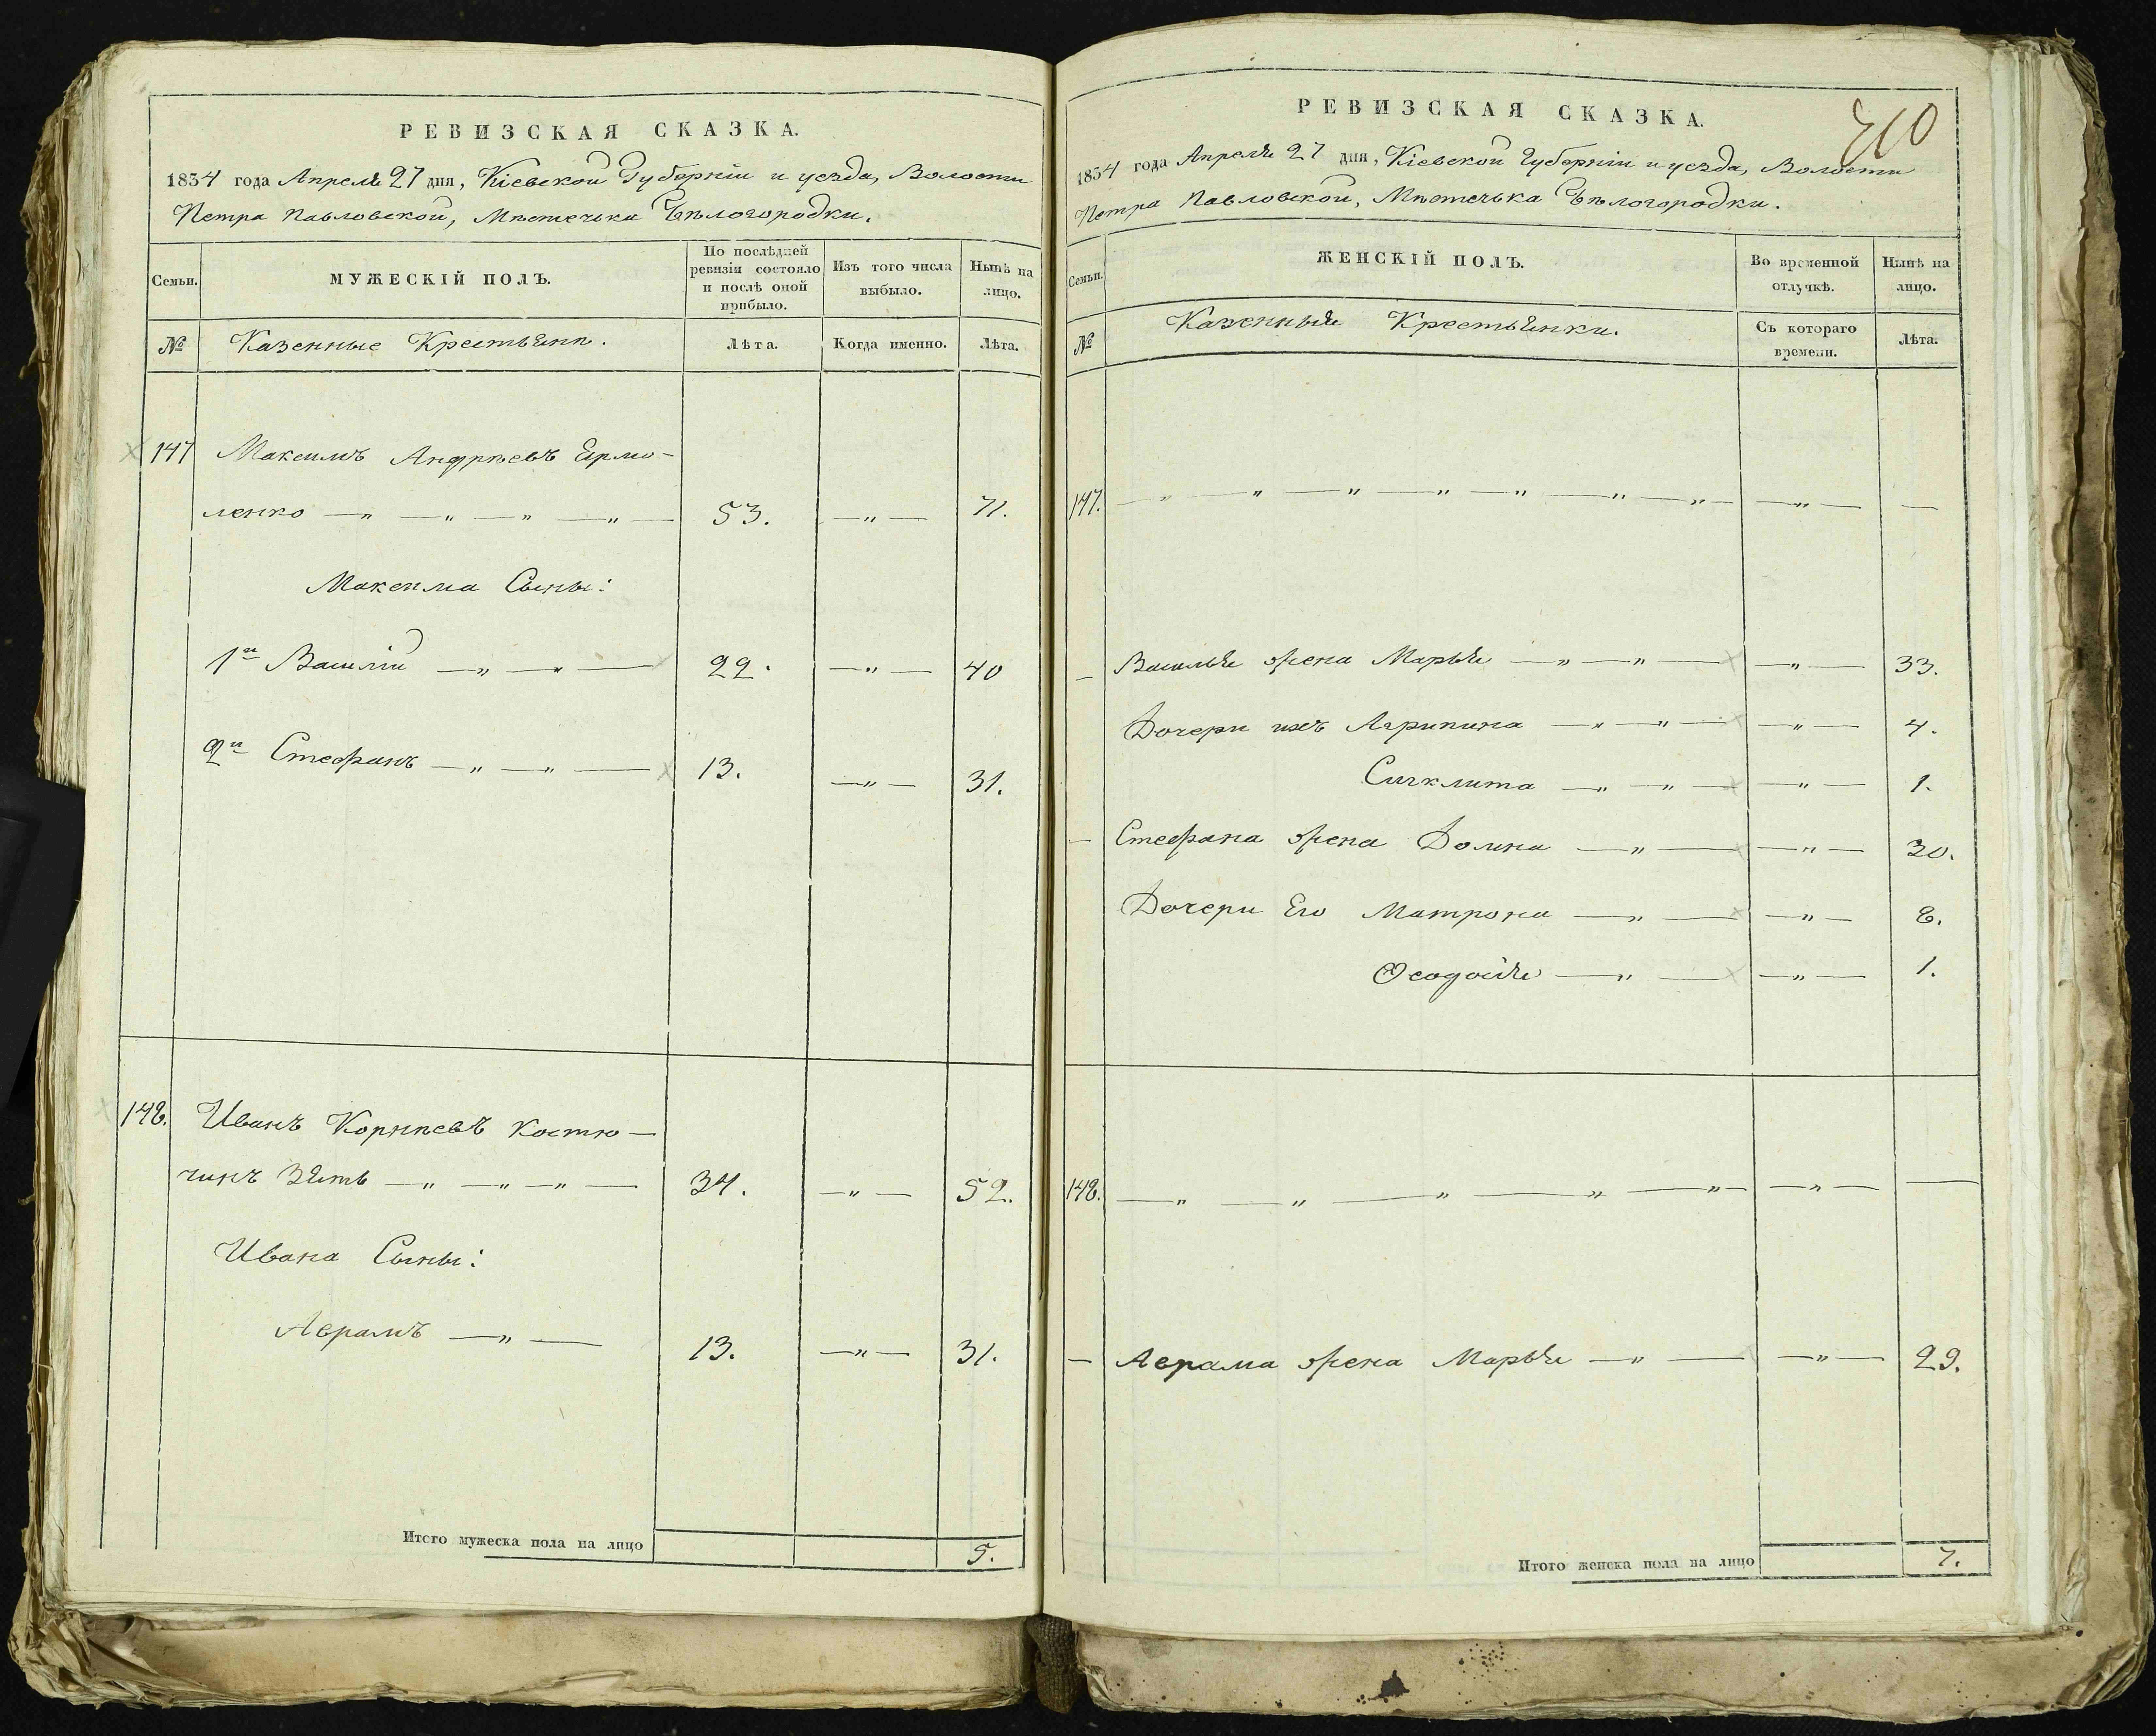 РЕВИЗСКАЯ СКАЗКА.
1834 года Апреля 27 дня, Кіевской Губерніи и уезда, Волости
Петра Павловской, Мѣстечька Бѣлогородки.
Семьи.
МУЖЕСКІЙ ПОЛЪ.
По послѣдней ревизіи состояло и послѣ оной прибыло.
Изъ того числа выбыло.
Нынѣ на лицо.
№
Казенные Крестьяне.
Лѣта.
Когда именно.
Лѣта.
147 Максимъ Андрѣевъ Ермо-
ленко — „ — „ — „ — „ — 53. — „ — 71.
Максима Сыны:
1й Василій — „ — „ — 22. — „ — 40
2й Стефанъ — „ — „ — 13. — „ — 31.
148. Иванъ Корнѣевъ Костю-
чикъ Зять — „ — „ — „ — 34. — „ — 52.
Ивана Сыны:
Аврамъ — „ — 13. — „ — 31.
Итого мужеска пола на лицо 5.
210
РЕВИЗСКАЯ СКАЗКА.
1834 года Апреля 27 дня, Кіевской Губерніи и уезда, Волости
Петра Павловской, Мѣстечька Бѣлогородки.
Семьи.
ЖЕНСКІЙ ПОЛЪ.
Во временной отлучкѣ.
Нынѣ на лицо.
№
Казенныя Крестьянки.
Съ котораго времени.
Лѣта.
147. — „ — „ — „ — „ — „ — „ — „ — — „ — —
— Василья жена Марья — „ — „ — — „ — 33.
Дочери ихъ Агрипина — „ — „ — — „ — 4.
Сигклита — „ — „ — — „ — 1.
— Стефана жена Домна — „ — — „ — 30.
Дочери Его Матрона — „ — — „ — 8.
Ѳеодосія — „ — — „ — 1.
148. — „ — „ — „ — „ — „ — — „ — —
— Аврама жена Марья — „ — — „ — 29.
Итого женска пола на лицо 7.